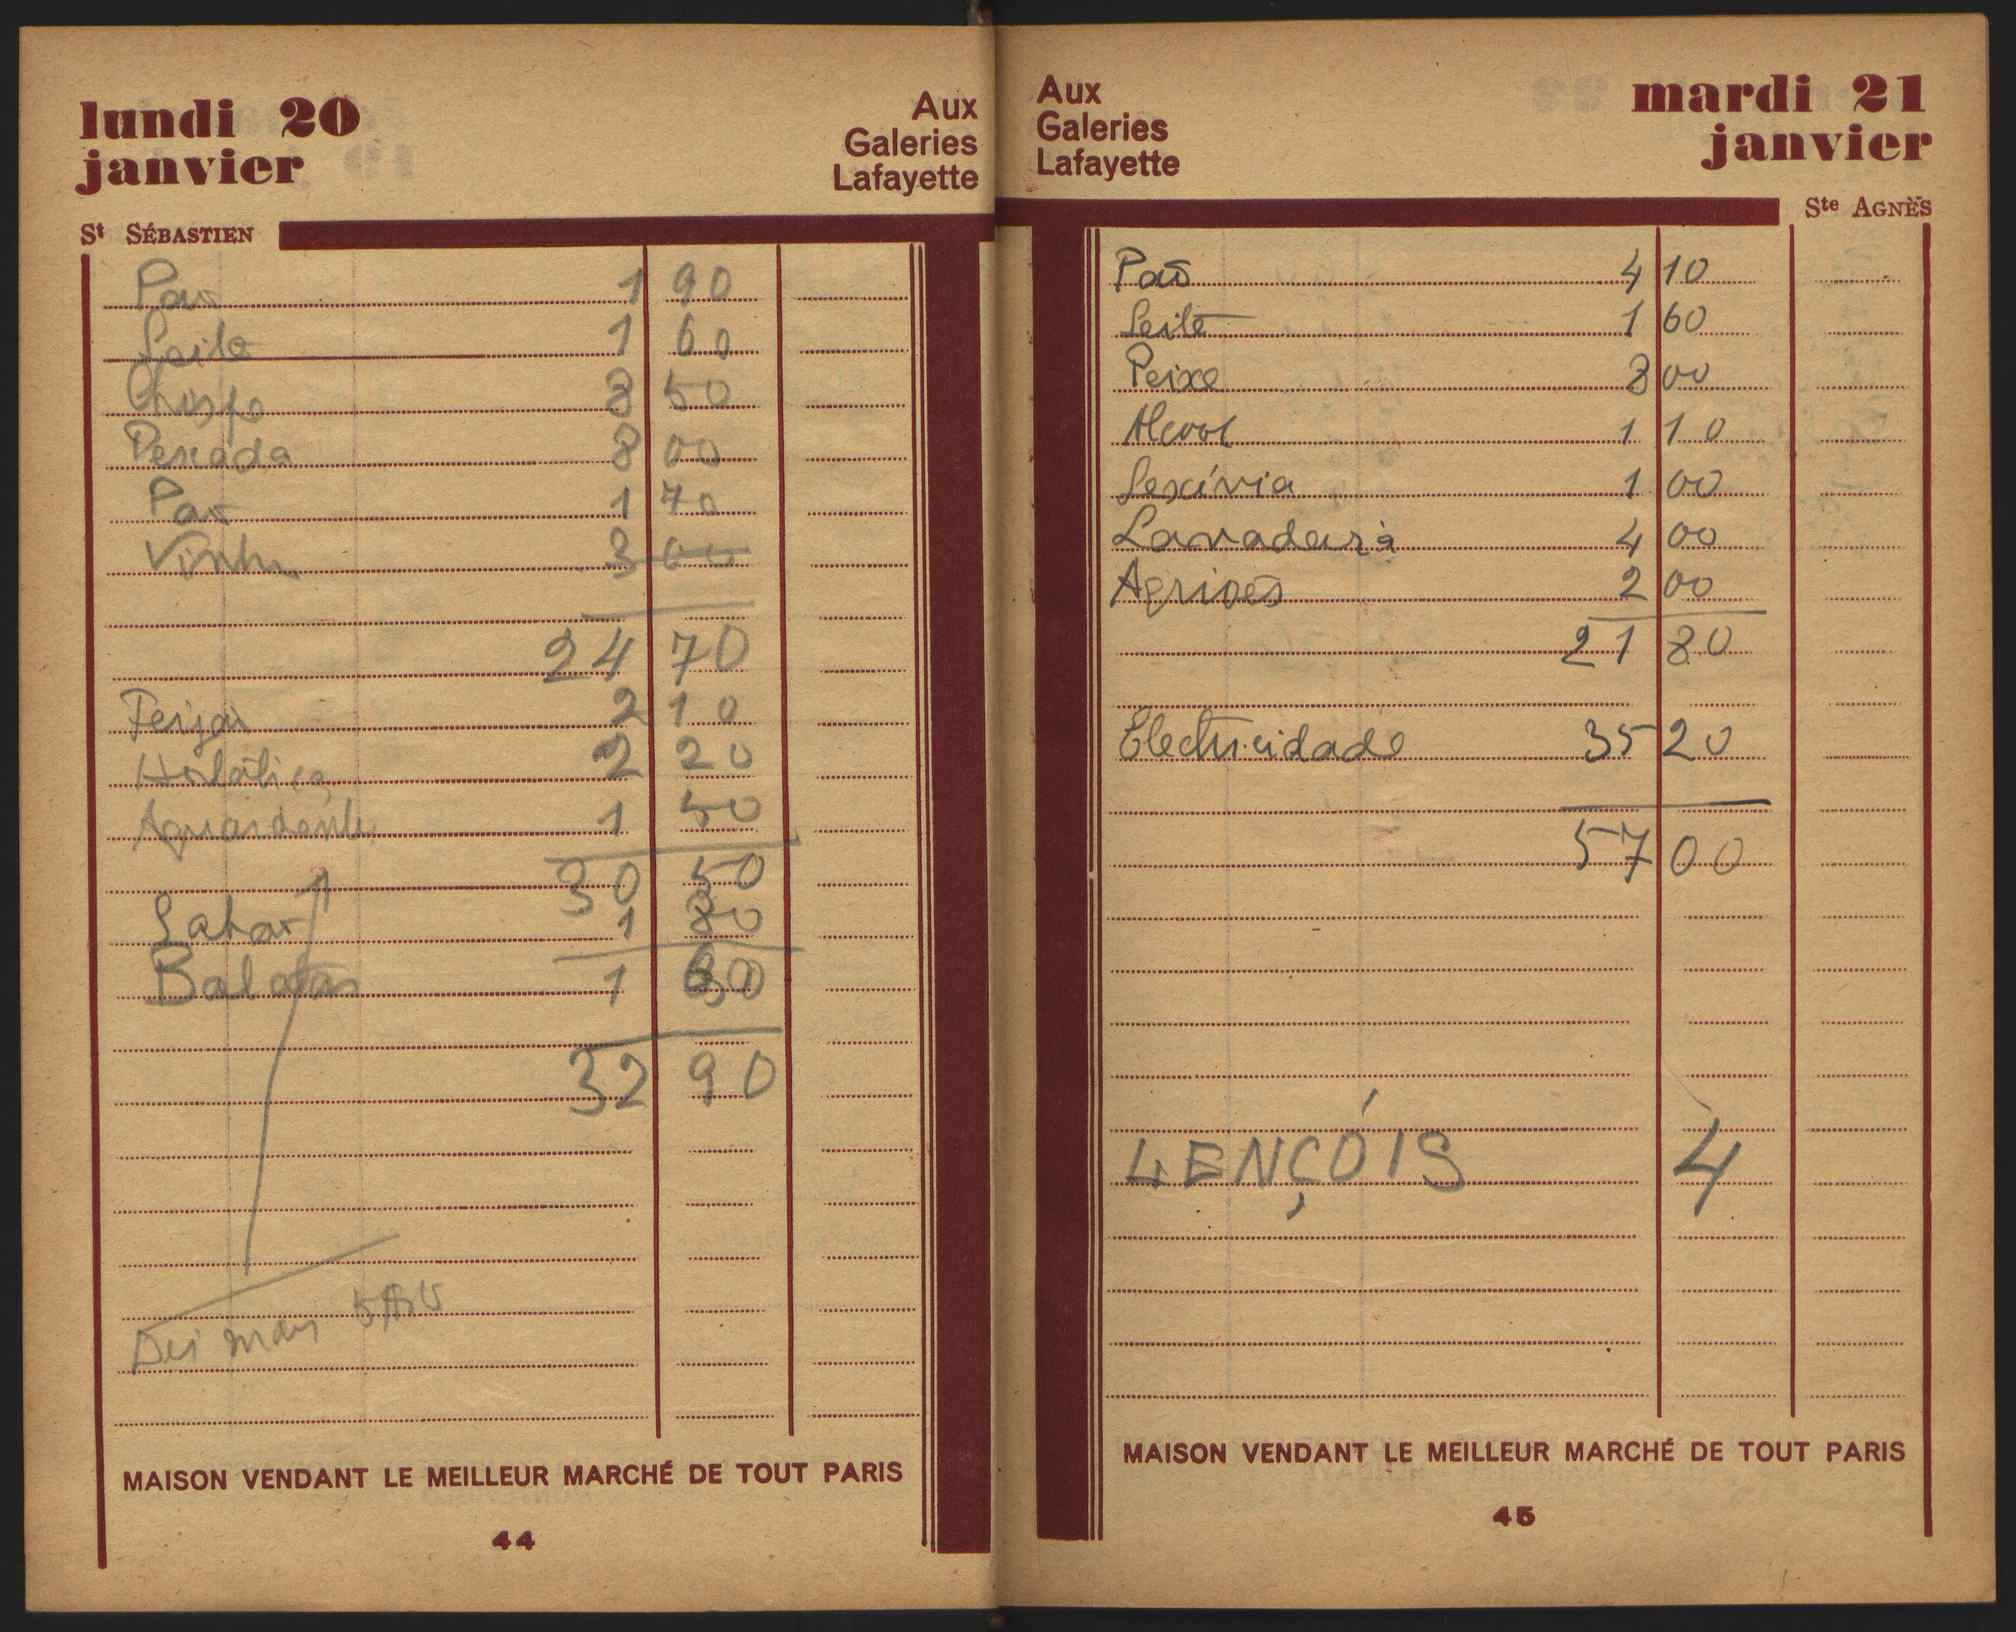 lundi 20
janvier
Aux
Galeries
Lafayette
St SÉBASTIEN
Pao 1 90
Leite 1 60
Chispe 8 50
Pescada 8 00
Pao 1 70
Vinho 3 00
24 70
Feijão 2 10
Hortaliça 2 20
Aguardente 1 50
30 50
Sabao 1 80
Batatas 1 60
32 90
Dei mais
MAISON VENDANT LE MEILLEUR MARCHÉ DE TOUT PARIS
44
Aux
Galeries
Lafayette
mardi 21
janvier
Ste AGNÈS
Paõ 4 10
Leite 1 60
Peixe 8 00
Alcool 1 10
Lexívia 1 00
Lavadeira 4 00
Agriões 2 00
21 80
Electricidade 35 20
57 00
LENÇÓIS 4
MAISON VENDANT LE MEILLEUR MARCHÉ DE TOUT PARIS
45